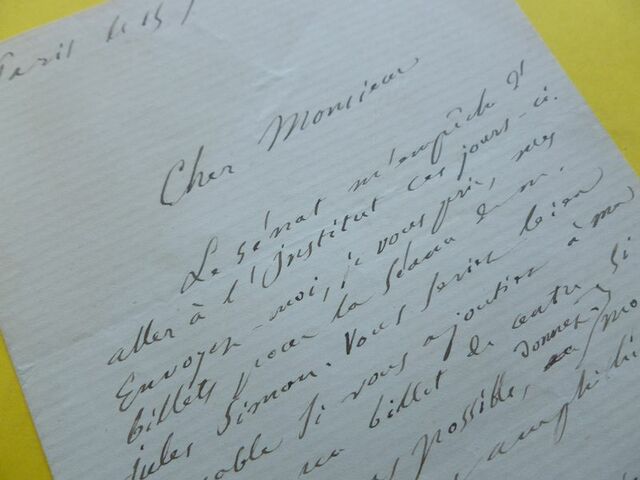 Paris le 15
Cher Monsieur
Le Sénat m'empêche d'
aller à l'Institut ces jours-ci.
Envoyez-moi, je vous prie, mes
billets pour la séance de m.
Jules Simon. Vous seriez bien
able si vous ajoutiez à ma
un billet de centre. Si
possible, donnez
amphithé